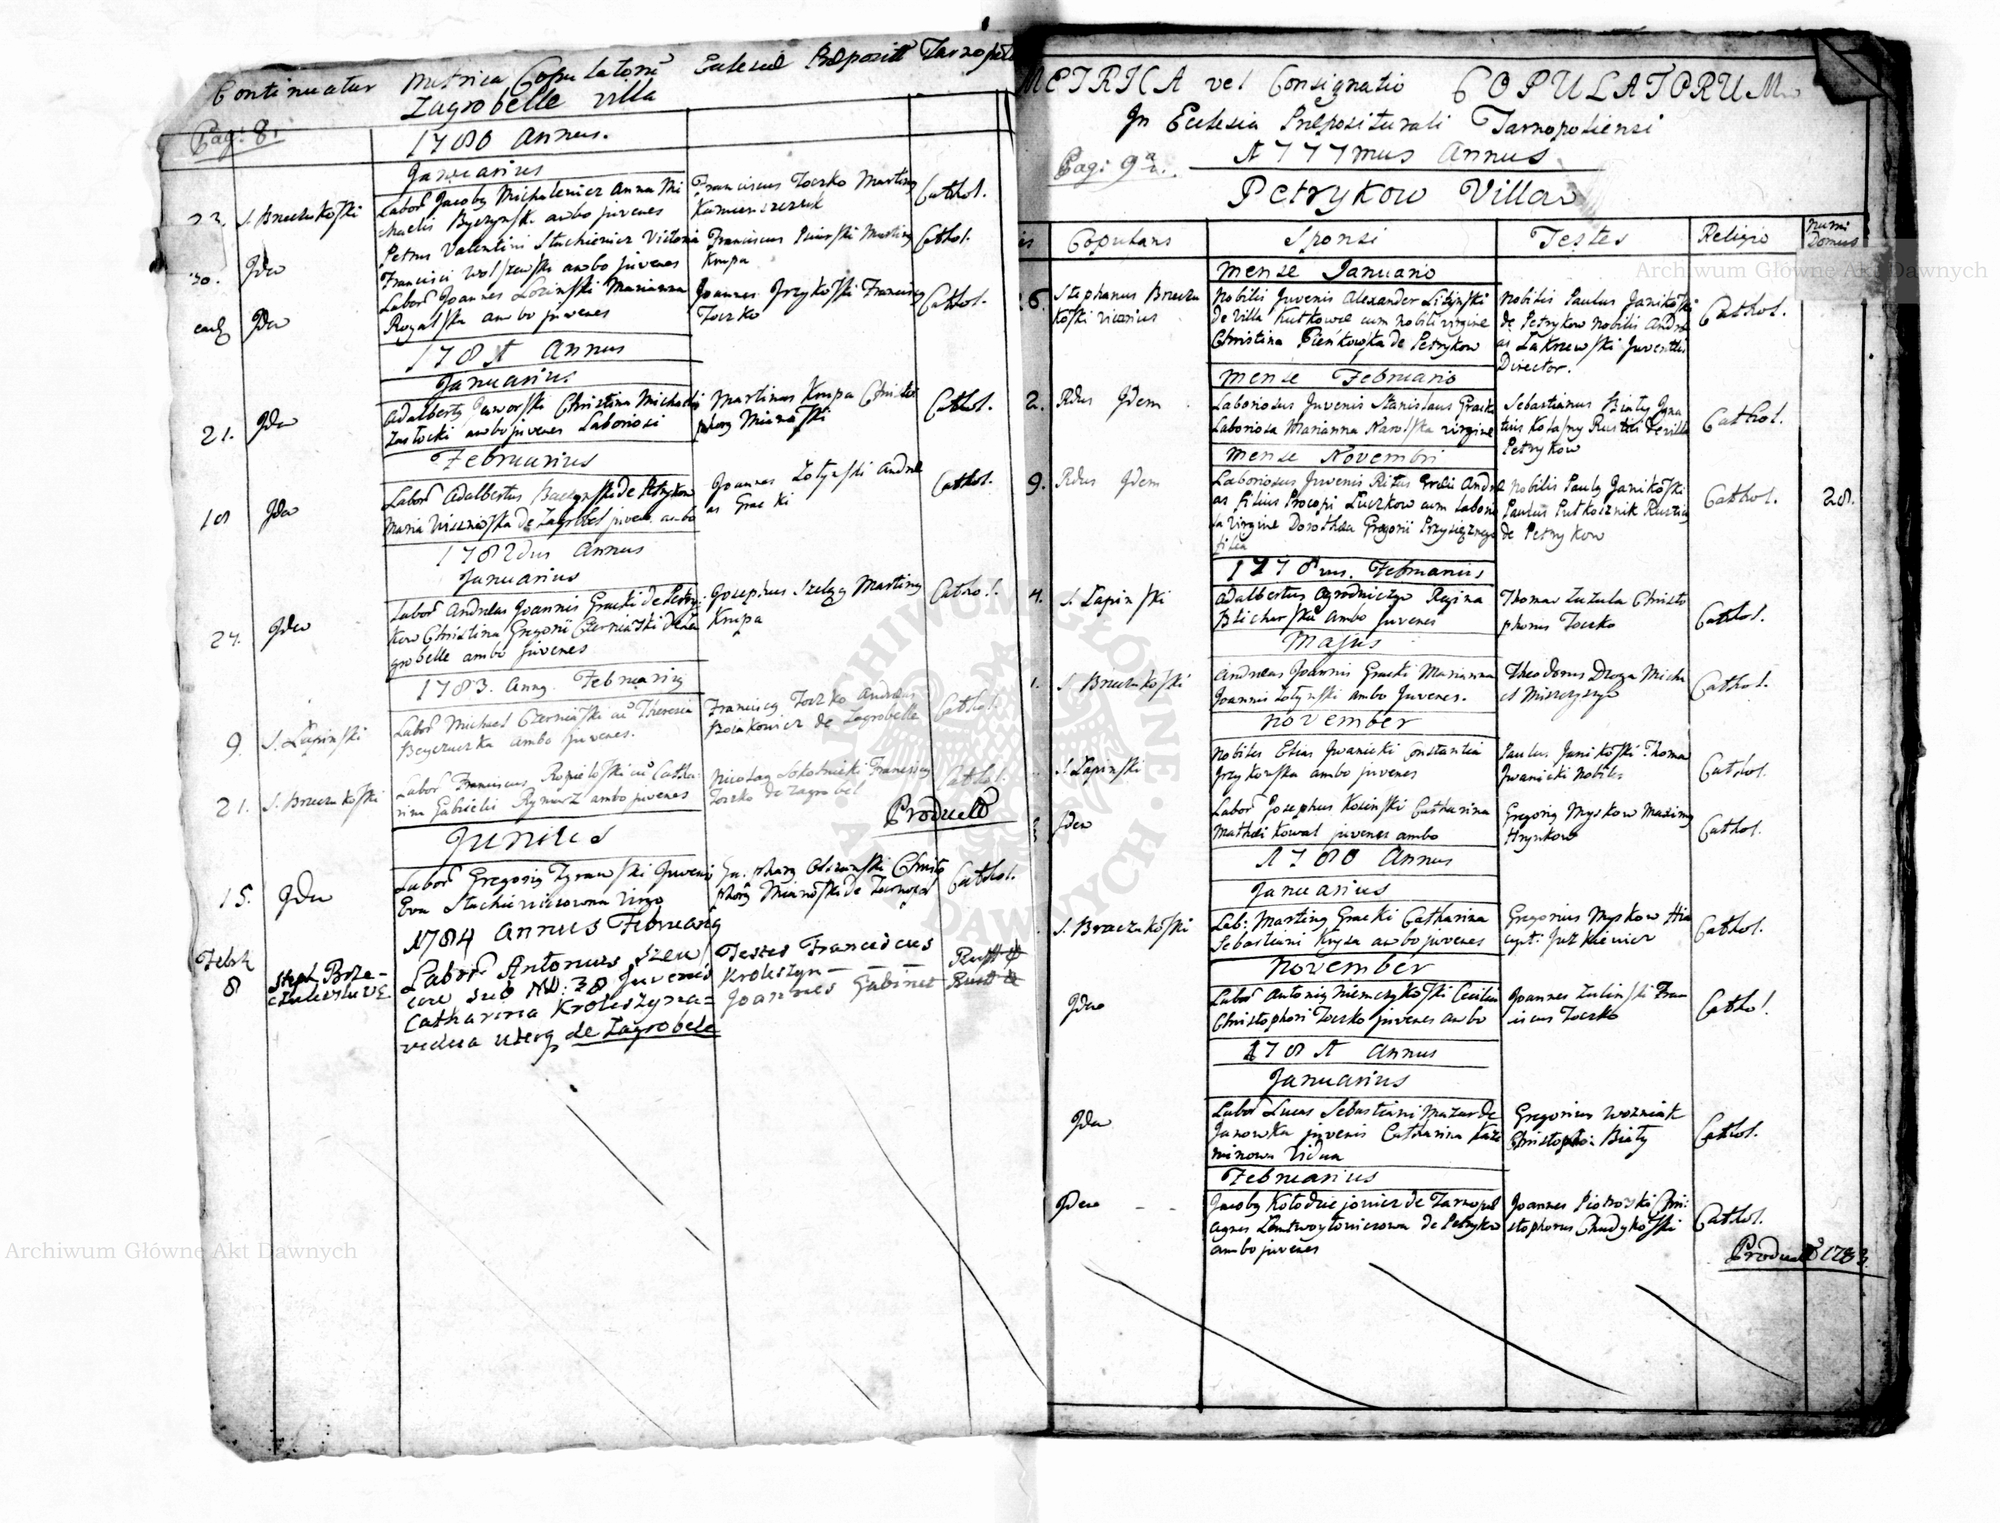 Continuatur Metrica Copulatorũ Eclesiæ Præposit Tarnopol
Zagrobelle villa
Pag: 8.
1780 Annus.
Januarius
23. S. Breczkoſki
Labor Jacobq Michalewicz Anna Mi
chaelis Byczynsk ambo juvenes
Franciscus Toczko Martinq
Kamienszczuk
Cathol.
30. Jdem
Petrus Valentini Stachiewicz Victoria
Francisci Wolszewski ambo juvenes
Franciscus Martinq
Krupa
Cathol.
eadẽ Jdem
Labor Joannes Lozinſki Marianna
Rogalſka ambo juvenes
Joannes Jrzykoſki Franciscq
Toczko
Cathol.
1781 Annus
Januarius
21. Jdem
Adalbertq Jaworſki Christina Michaelis
Zastocki ambo juvenes Laboriosi
Martinus Krupa Christo
phorq Mianoſki
Cathol.
Februarius
18 Jdem
Labor Adalbertus de Petrykow
Maria Visznioſka de Zagrobel juven. ambo
Joannes Zotynſki Andre
as Gracki
Cathol.
1782dus Annus
Januarius
27. Jdem
Labor Andreas Joannis Gracki de Petry
kow Christina Gregorii Czerniaſki de Za
grobelle ambo juvenes
Josephus Szeląg Martinq
Krupa
Cathol.
1783. Annq Februariq
9. S. Lapinſki
Labor Michael Czerniaſki cũ Theresia
Beyczuczka ambo juvenes.
Franciscq Toczko Andreas
Boiakowicz de Zagrobelle
Cathol.
21. S. Breczkoſki
Labor Franciscus Ropieloſki cũ Catha
rina Gabrielis Rymarz ambo juvenes
Nicolaq Sokolnicki Franciscq
Toczko de Zagrobel
Cathol.
Product
Junius
15. Jdem
Labor Gregoriq Zyrawſki Juvenis
Eva Stachiewiczowna Virgo
Olszanſki Christo
phorq Mianoſki de Tarnopol
Cathol.
1784 Annus Februarq
Febr
8
Steph Brze-
Labor Antonius Szew
czew sub No: 38 Juvenis
Catharina Kroleszyna=
vidua uterq de Zagrobele
Testes Franciscus
Kroleszyn —
Joannes Gabinet
Rust
Rust
METRICA vel Consignatio COPULATORUM
Jn Eclesia Præpositurali Tarnopoliensi
Pag: 9a.
1777mus Annus
Petrykow Villa
Copulans Sponsi Testes Religio Numi
Domus
Mense Januario
26. Stephanus Breczu
koſki vicarius
Nobilis Juvenis Alexander Litynſki
de Villa Kutkowce cum nobili virgine
Christina Pieńkowſka de Petrykow
Nobilis Paulus Janikoſki
de Petrykow nobilis Andre
as Zakrzewſki Juventutis
Director.
Cathol.
Mense Februario
2. Rdus Jdem
Laboriosus Juvenis Stanislaus Gracki
Laboriosa Marianna Naroſka virgine
Sebastianus Biały Jgna
tius Kosasny Rustici de villa
Petrykow
Cathol.
Mense Novembri
9. Rdus Jdem
Laboriosus Juvenis Ritus Græci Andre
as filius Procopi Łuczkow cum Laborio
sa Virgine Dorothæa Gregorii Przysięznego
filia
Nobilis Paulq Janikoſki
Paulus Putkosznik Rusticq
de Petrykow
Cathol. 28.
1778vus. Februarius
4. S. Lapinſki
Adalbertus Ogrodniczyn Regina
Blicharſka ambo Juvenes
Thomas Zuzula Christo
phorus Toczko
Cathol.
Majus
1. S. Breczkoſki
Andreas Joannis Gracki Marianna
Joannis Zotynſki ambo Juvenes.
Theodorus Duga Micha
el Mieczyszyn
Cathol.
November
S. Lapinſki
Nobiles Elias Jwanicki Constantia
Jrzykowska ambo juvenes
Paulus Janikoſki Thoma
Jwanicki Nobiles
Cathol.
Jdem
Labor Josephus Kosinſki Catharina
Mathæi Kowal juvenes ambo
Gregoriq Myskow Maximq
Hrynkow
Cathol.
1780 Annus
Januarius
S. Braczkoſki
Lab: Martinq Gracki Catharina
Sebastiani Kryza ambo juvenes
Gregorius Myskow Hia
cynt: Juzkiewicz
Cathol.
November
Jdem
Labor Antoniq Niemczykoſki Cecilia
Christophori Toczko juvenes ambo
Joannes Zulinſki Fran
ciscus Toczko
Cathol
1781 Annus
Januarius
Jdem
Labor Lucas Sebastiani Mazur de
Janowka juvenis Catharina Kazi
mirowa Vidua
Gregorius Wozniak
Christophor Biały
Cathol.
Februarius
Jdem
Jacobq Kołodziejowicz de Tarnopol
Agnes de Petrykow
ambo juvenes
Joannes Piotroſki Chri:
stophorus Chudykoſki
Cathol.
Product 1783.
Archiwum Główne Akt Dawnych
Archiwum Główne Akt Dawnych
ARCHIWUM GŁÓWNE AKT DAWNYCH